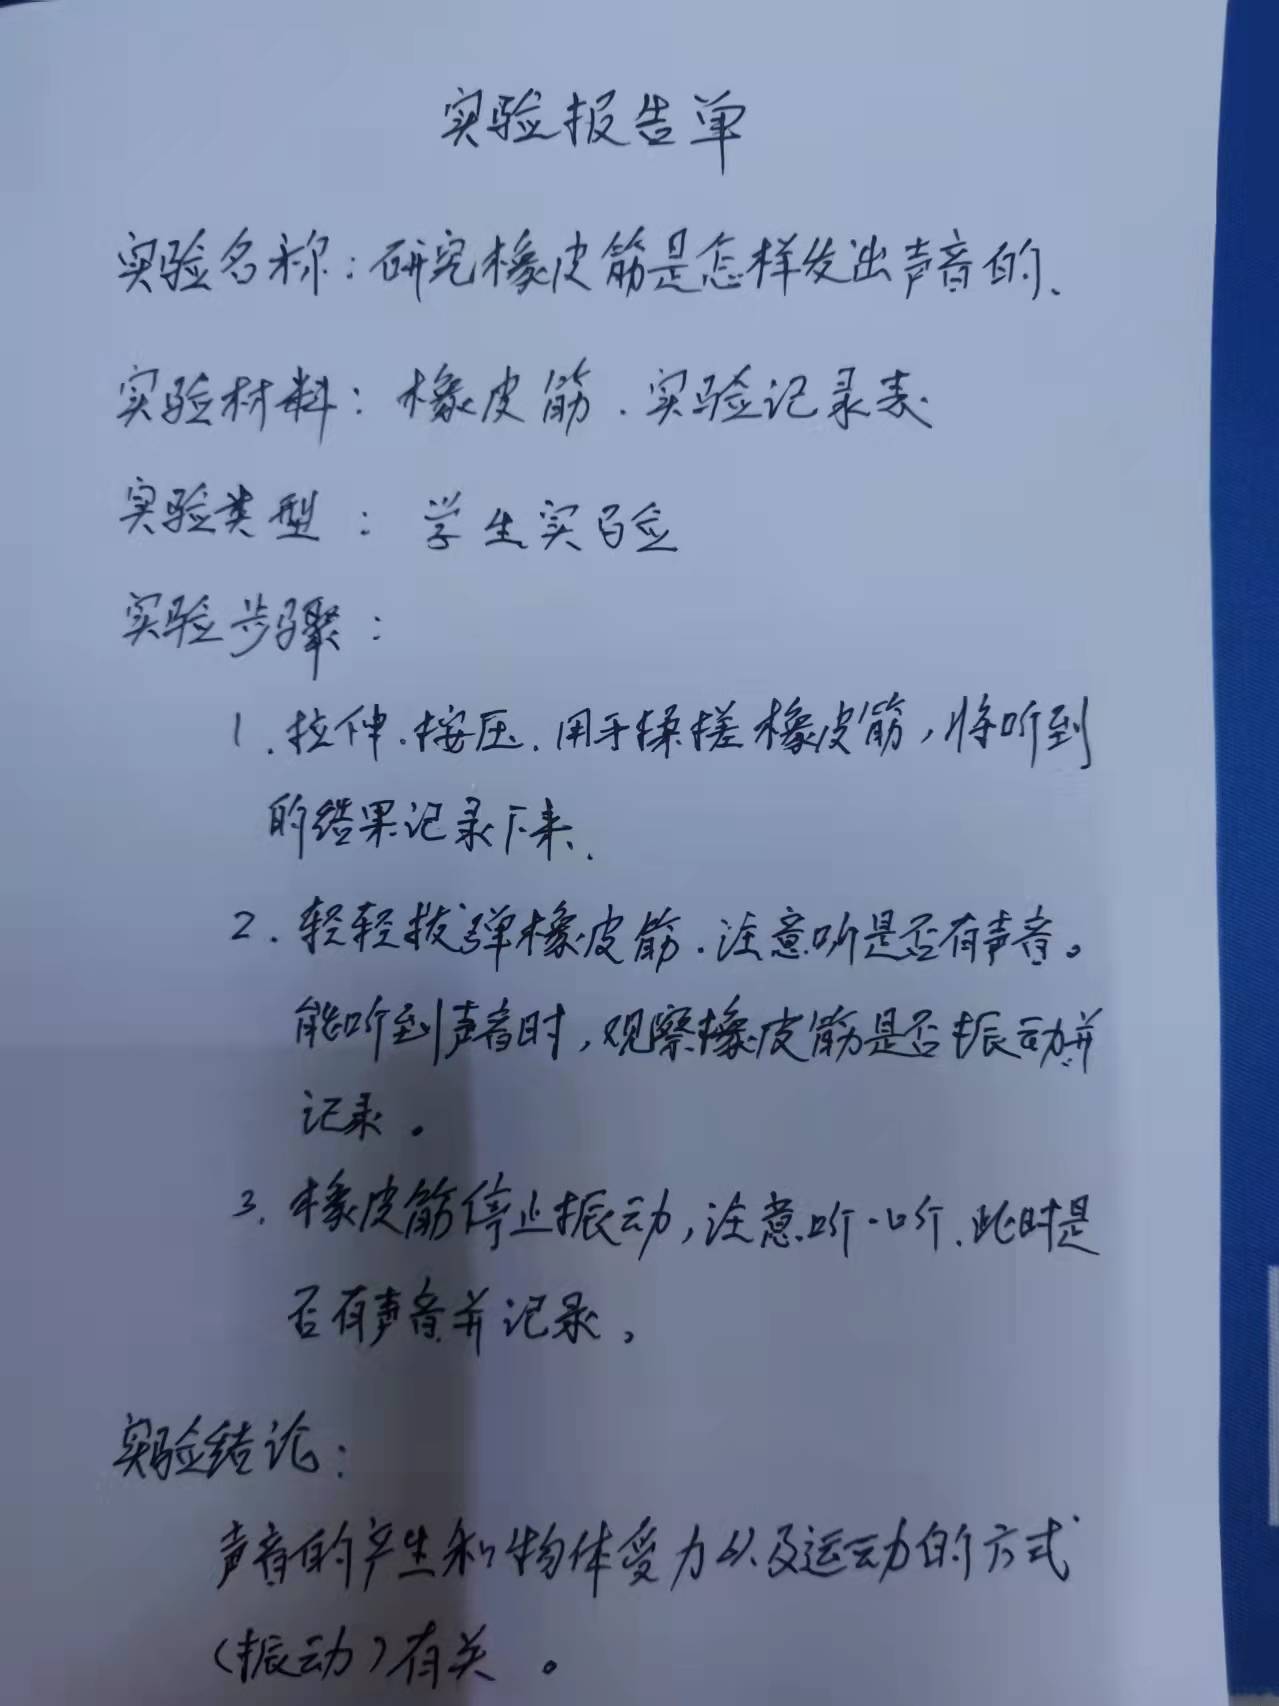 实验报告单
实验名称：研究橡皮筋是怎样发出声音的.
实验材料：橡皮筋.实验记录表
实验类型：学生实验
实验步骤：
1.拉伸.按压.用手揉搓橡皮筋，将听到
的结果记录下来.
2.轻轻拔弹橡皮筋.注意听是否有声音。
能听到声音时，观察橡皮筋是否振动并
记录。
3.橡皮筋停止振动，注意听一听.此时是
否有声音并记录。
实验结论：
声音的产生和物体受力以及运动的方式
（振动）有关。